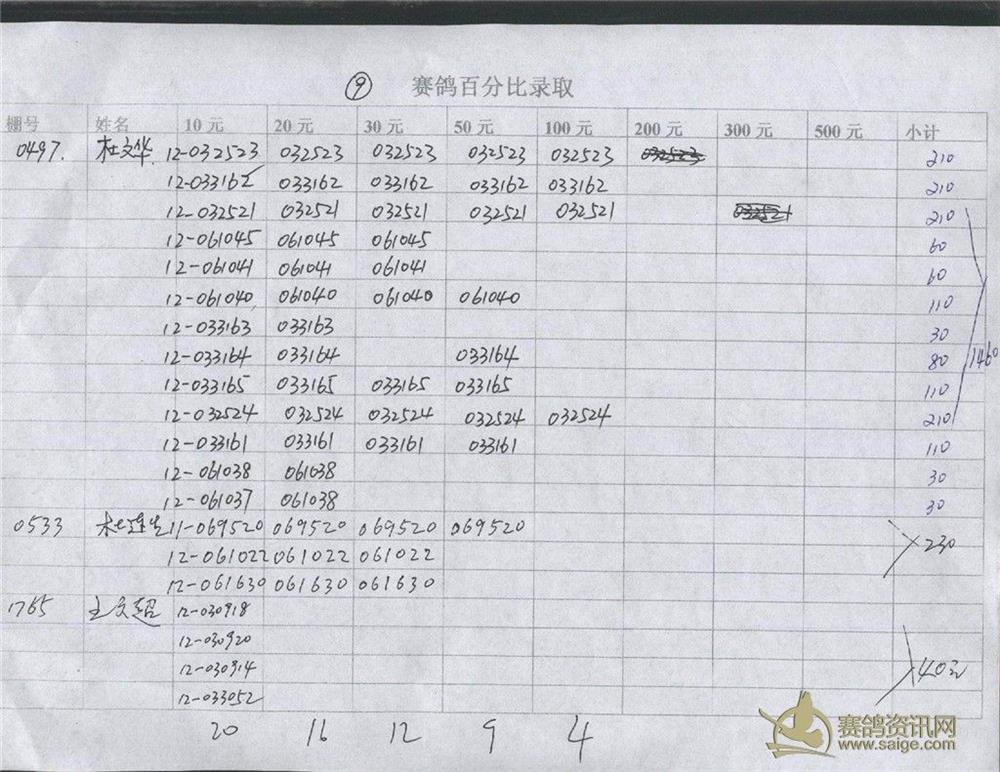 ⑨ 赛鸽百分比录取
棚号 姓名 10元 20元 30元 50元 100元 200元 300元 500元 小计
0497. 杜文华 12-032523 032523 032523 032523 032523 032523 210
12-033162 033162 033162 033162 033162 210
12-032521 032521 032521 032521 032521 032521 210
12-061045 061045 061045 60
12-061041 061041 061041 60
12-061040 061040 061040 061040 110
12-033163 033163 30
12-033164 033164 033164 80 1460
12-033165 033165 033165 033165 110
12-032524 032524 032524 032524 032524 210
12-033161 033161 033161 033161 110
12-061038 061038 30
12-061037 061038 30
0533 杜连生 11-069520 069520 069520 069520 230
12-061022 061022 061022
12-061630 061630 061630
1765 王文超 12-030918
12-030920
12-030914 40元
12-033052
20 16 12 9 4
赛鸽资讯网
www.saige.com